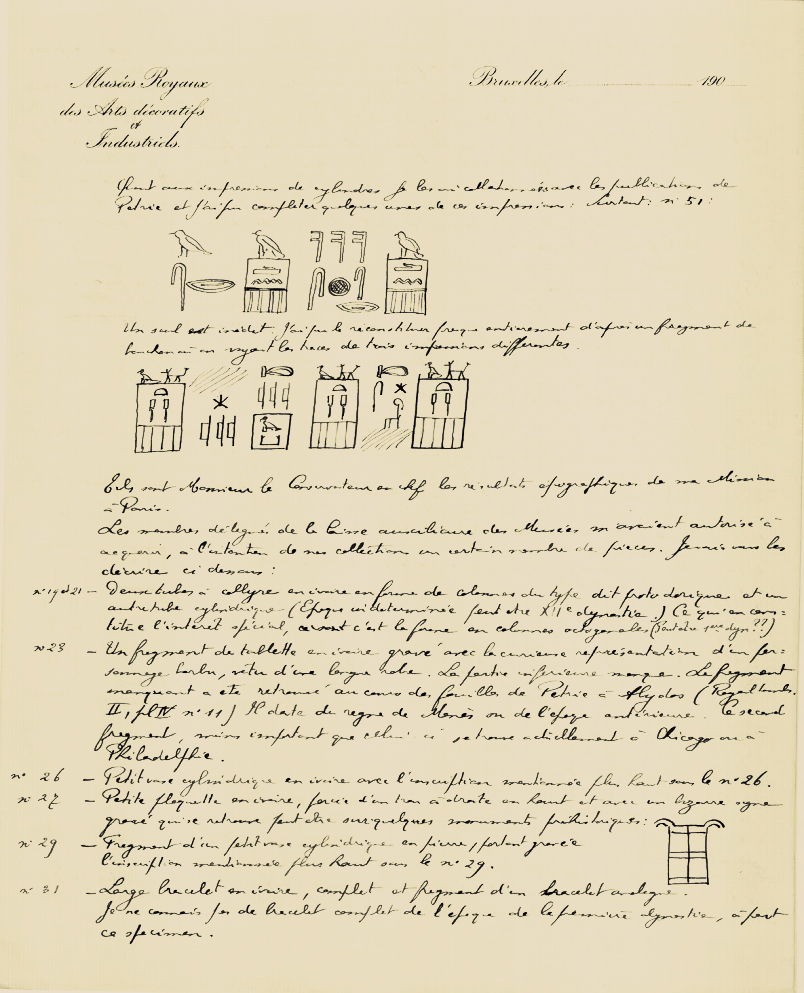 Musées Royaux
des Arts décoratifs
et
Industriels.
Bruxelles, le 190
Quant aux impressions de cylindres je les ai collationnées avec les publications de
Petrie et j'ai pu compléter quelques unes de ces impressions : surtout : n° 51 :
Un seul est inédit. J'ai pu le reconstituer presque entièrement d'après un fragment de
bouchon où on voyait les traces de trois impressions différentes.
Tels sont Monsieur le Conservateur en chef les résultats épigraphiques de ma Mission
à Paris.
Les membres délégués de la Caisse auxiliaire des Musées m'avaient autorisé à
acquérir, à l'intention de nos collections un certain nombre de pièces. Je vais vous les
décrire ci dessous :
n° 19 et 21 – Deux tubes à collyre en ivoire en forme de colonnes du type dit protodorique et un
autre tube cylindrique – (Epoque indéterminée peut être XIIe dynastie.) Ce qui en cons=
titue l'intérêt spécial, c'est la forme en colonnes octogonales (peut être 1ère dyn ??)
n° 23 – Un fragment de tablette en ivoire gravé avec la curieuse représentation d'un per=
sonnage barbu, vêtu d'une longue robe. La partie inférieure manque. Le fragment
manquant a été retrouvé au cours des fouilles de Petrie à Abydos (Royal tombs.
II, pl IV n° 11) Il date du règne de Menès ou de l'époque antérieure. Ce second
fragment, moins important que celui ci se trouve actuellement à Chicago ou à
Philadelphie.
n° 26 – Petit vase cylindrique en ivoire avec l'inscription mentionnée plus haut sous le n° 26.
n° 27 – Petite plaquette en ivoire, percée d'un trou à droite en haut et avec un bizarre signe
gravé qui se retrouve peut être sur quelques monuments préhistoriques :
n° 29 – Fragment d'un petit vase cylindrique en pierre, portant gravée
l'inscription mentionnée plus haut sous le n° 29.
n° 31 – Large bracelet en ivoire, complet et fragment d'un bracelet analogue.
Je ne connais pas de bracelet complet de l'époque de la première dynastie, à part
ce specimen.